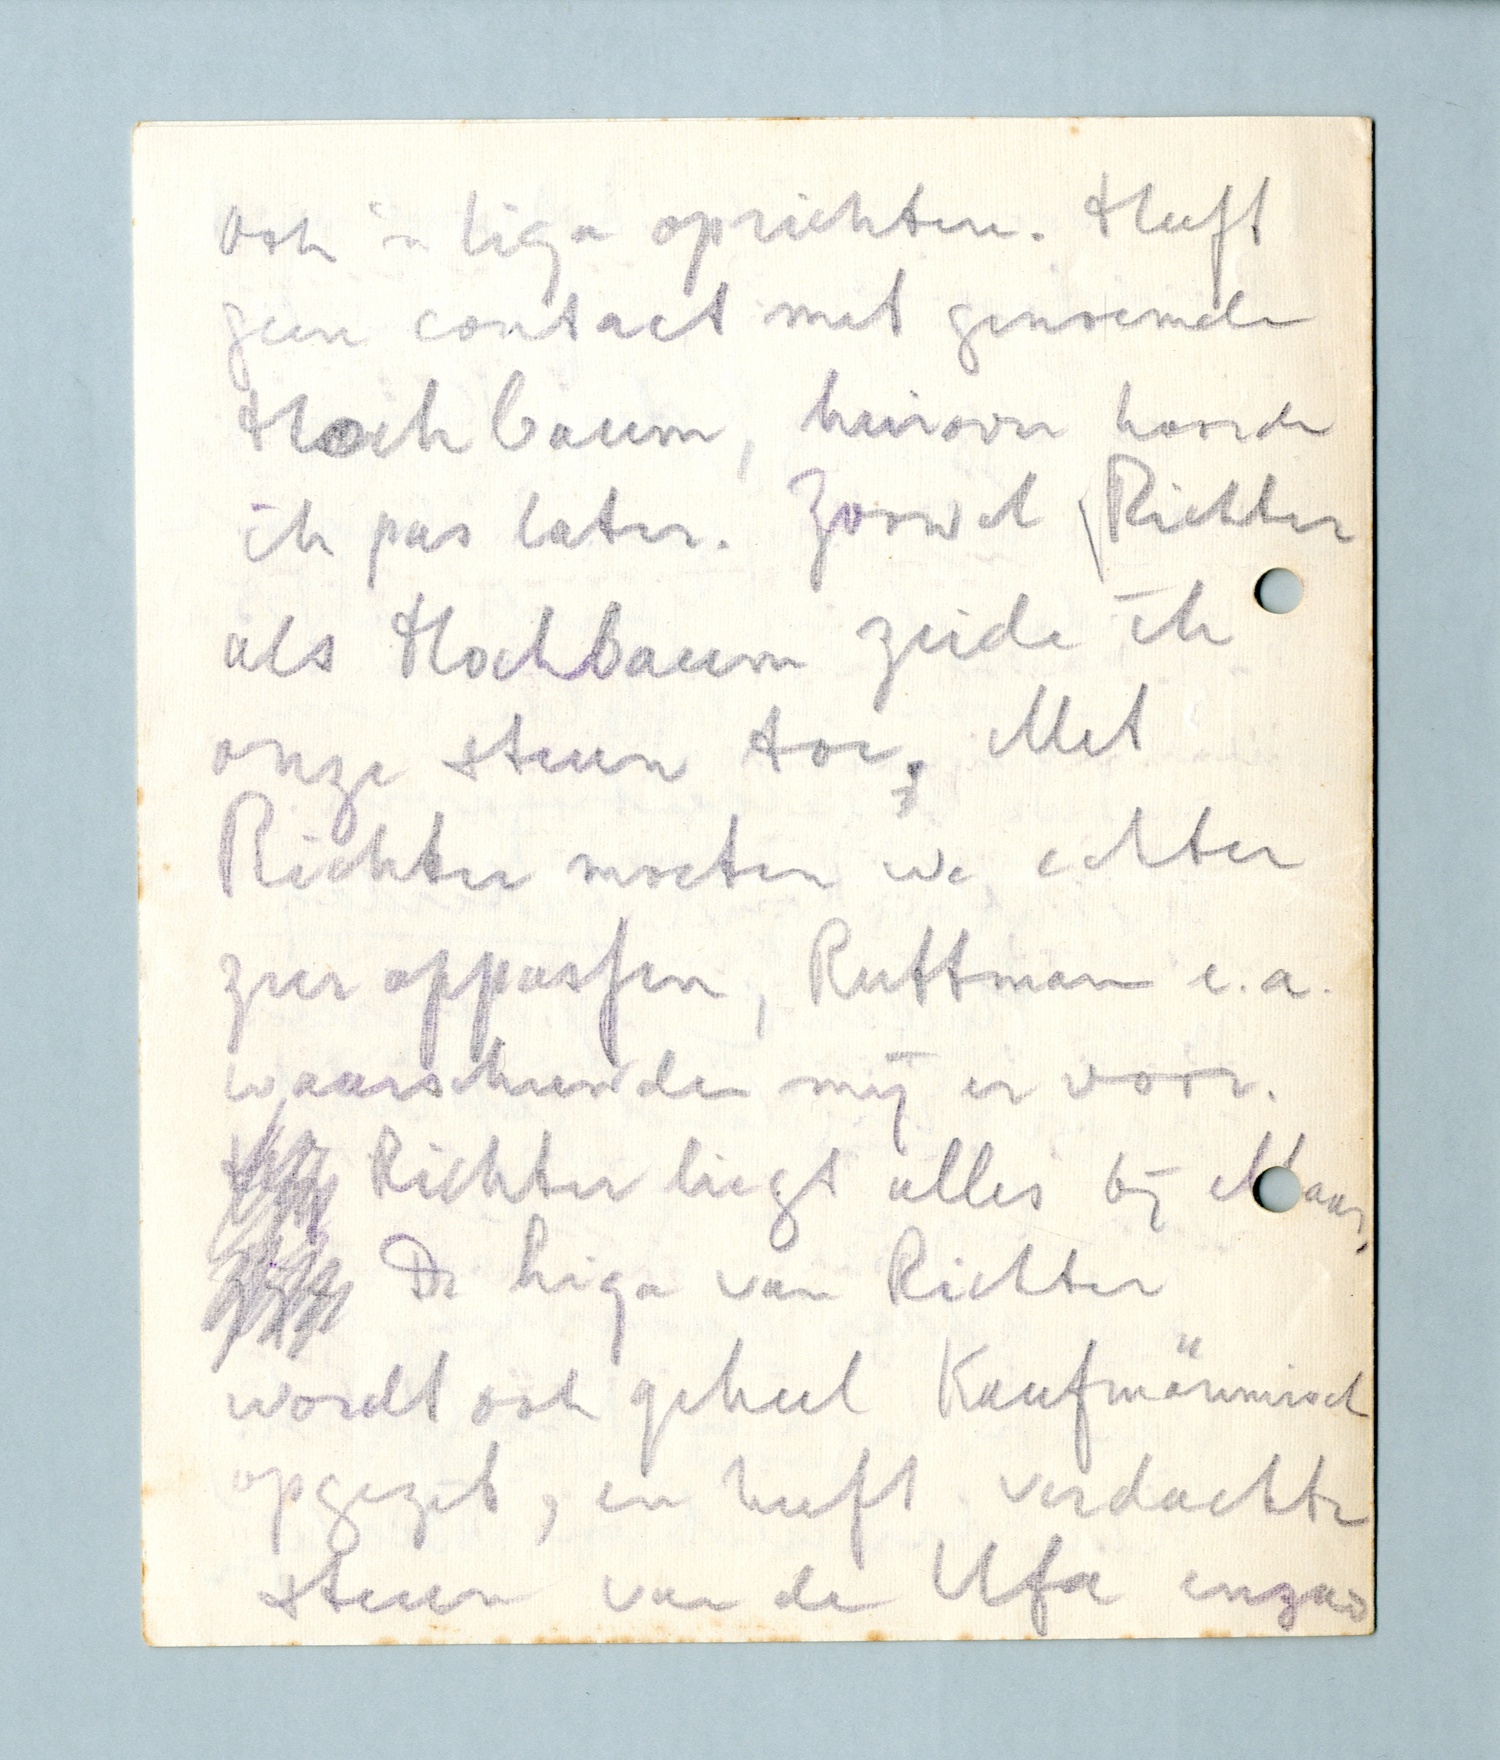 ook 'n liga oprichten. Heeft
geen contact met genoemde
Hochbaum, hierover hoorde
ik pas later. Zoowel Richter
als Hochbaum zeide ik
onze steun toe. Met
Richter moeten we echter
zeer oppassen, Ruttman e.a.
waarschuwden mij er voor.
Richter liegt alles bij elkaar.
De liga van Richter
wordt ook geheel Kaufmännisch
opgezet, en heeft verdachte
steun van de Ufa enzoo